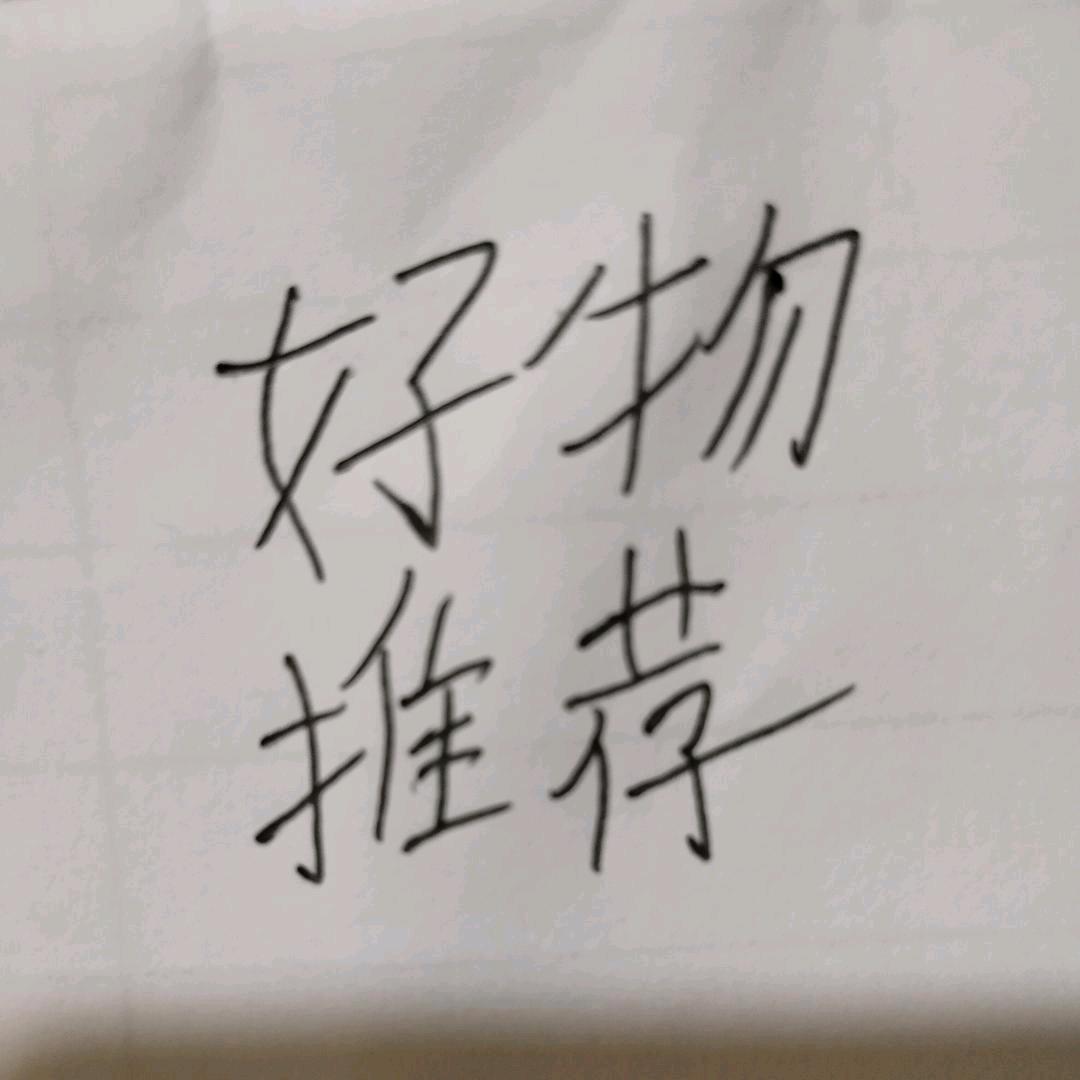 好物
推荐